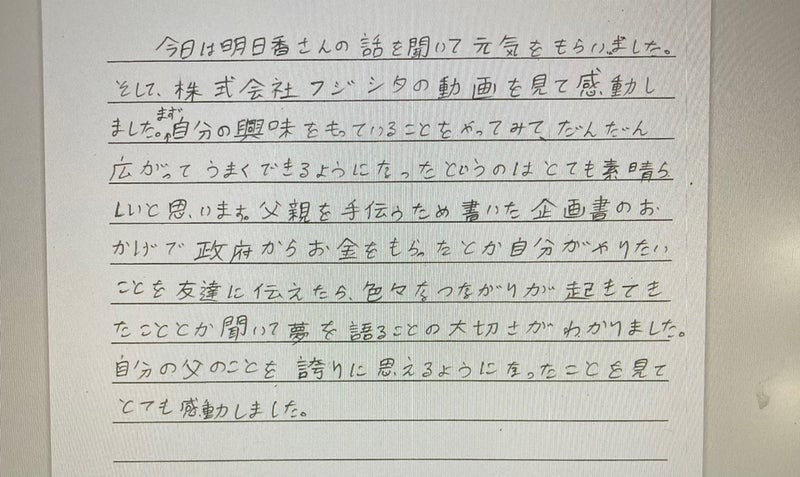 今日は明日香さんの話を聞いて元気をもらいました。
そして、株式会社フジシタの動画を見て感動し
ました。まず自分の興味をもっていることをやってみて、だんだん
広がってうまくできるようになったというのはとても素晴ら
しいと思います。父親を手伝うため書いた企画書のお
かげで政府からお金をもらったとか自分がやりたい
ことを友達に伝えたら、色々なつながりが起きてき
たこととか聞いて夢を語ることの大切さがわかりました。
自分の父のことを誇りに思えるようになったことを見て
とても感動しました。